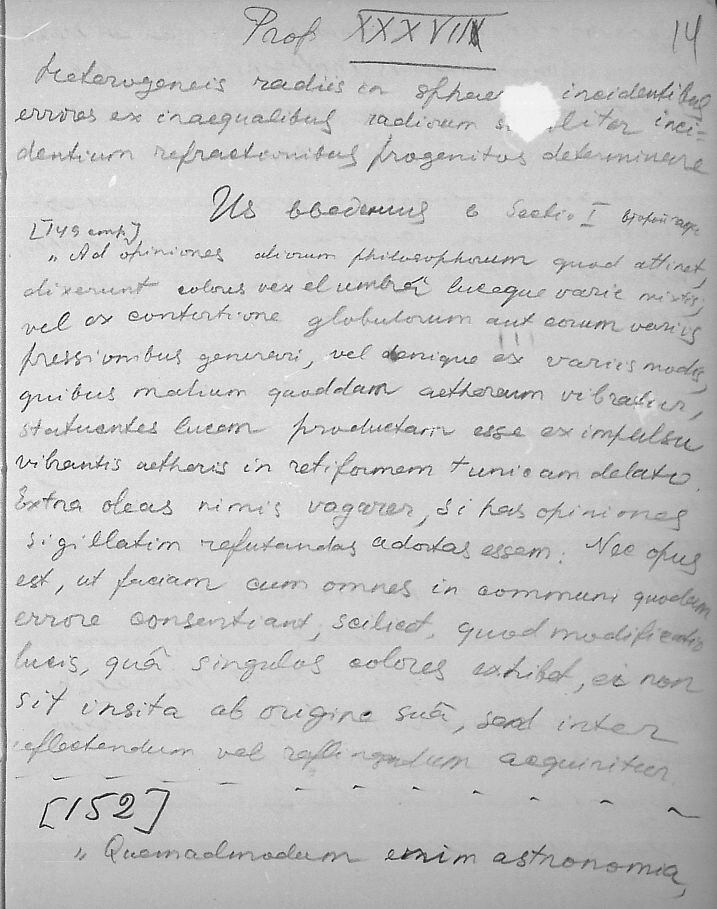 Prop XXXVIII
14
Heterogeneis radiis in sphae incidentibus
errores ex inaequalibus radiorum s liter inci=
dentium refractionibus progenitos determinare
Из введения в Sectio I
[149 стр.]
„Ad opiniones aliorum philosophorum quod attinet,
dixerunt colores vex el umbrâ luceque varie mixtis,
vel ex contortione globulorum aut eorum variis
pressionibus generari, vel denique ex variis modis,
quibus medium quoddam aethereum vibratur,
statuentes lucem productam esse ex impulsu
vibrantis aetheris in retiformem tunicam delato.
Extra oleas nimis vagarer, si has opiniones
sigillatim refutandas adortas essem. Nec opus
est, ut faciam cum omnes in communi quodam
errore consentiant, scilicet, quod modificatio
lucis, quâ singulos colores exhibet, ei non
sit insita ab origine suâ, sed inter
reflectendum vel refringendum acquiritur.
[152]
„Quemadmodum enim astronomia,